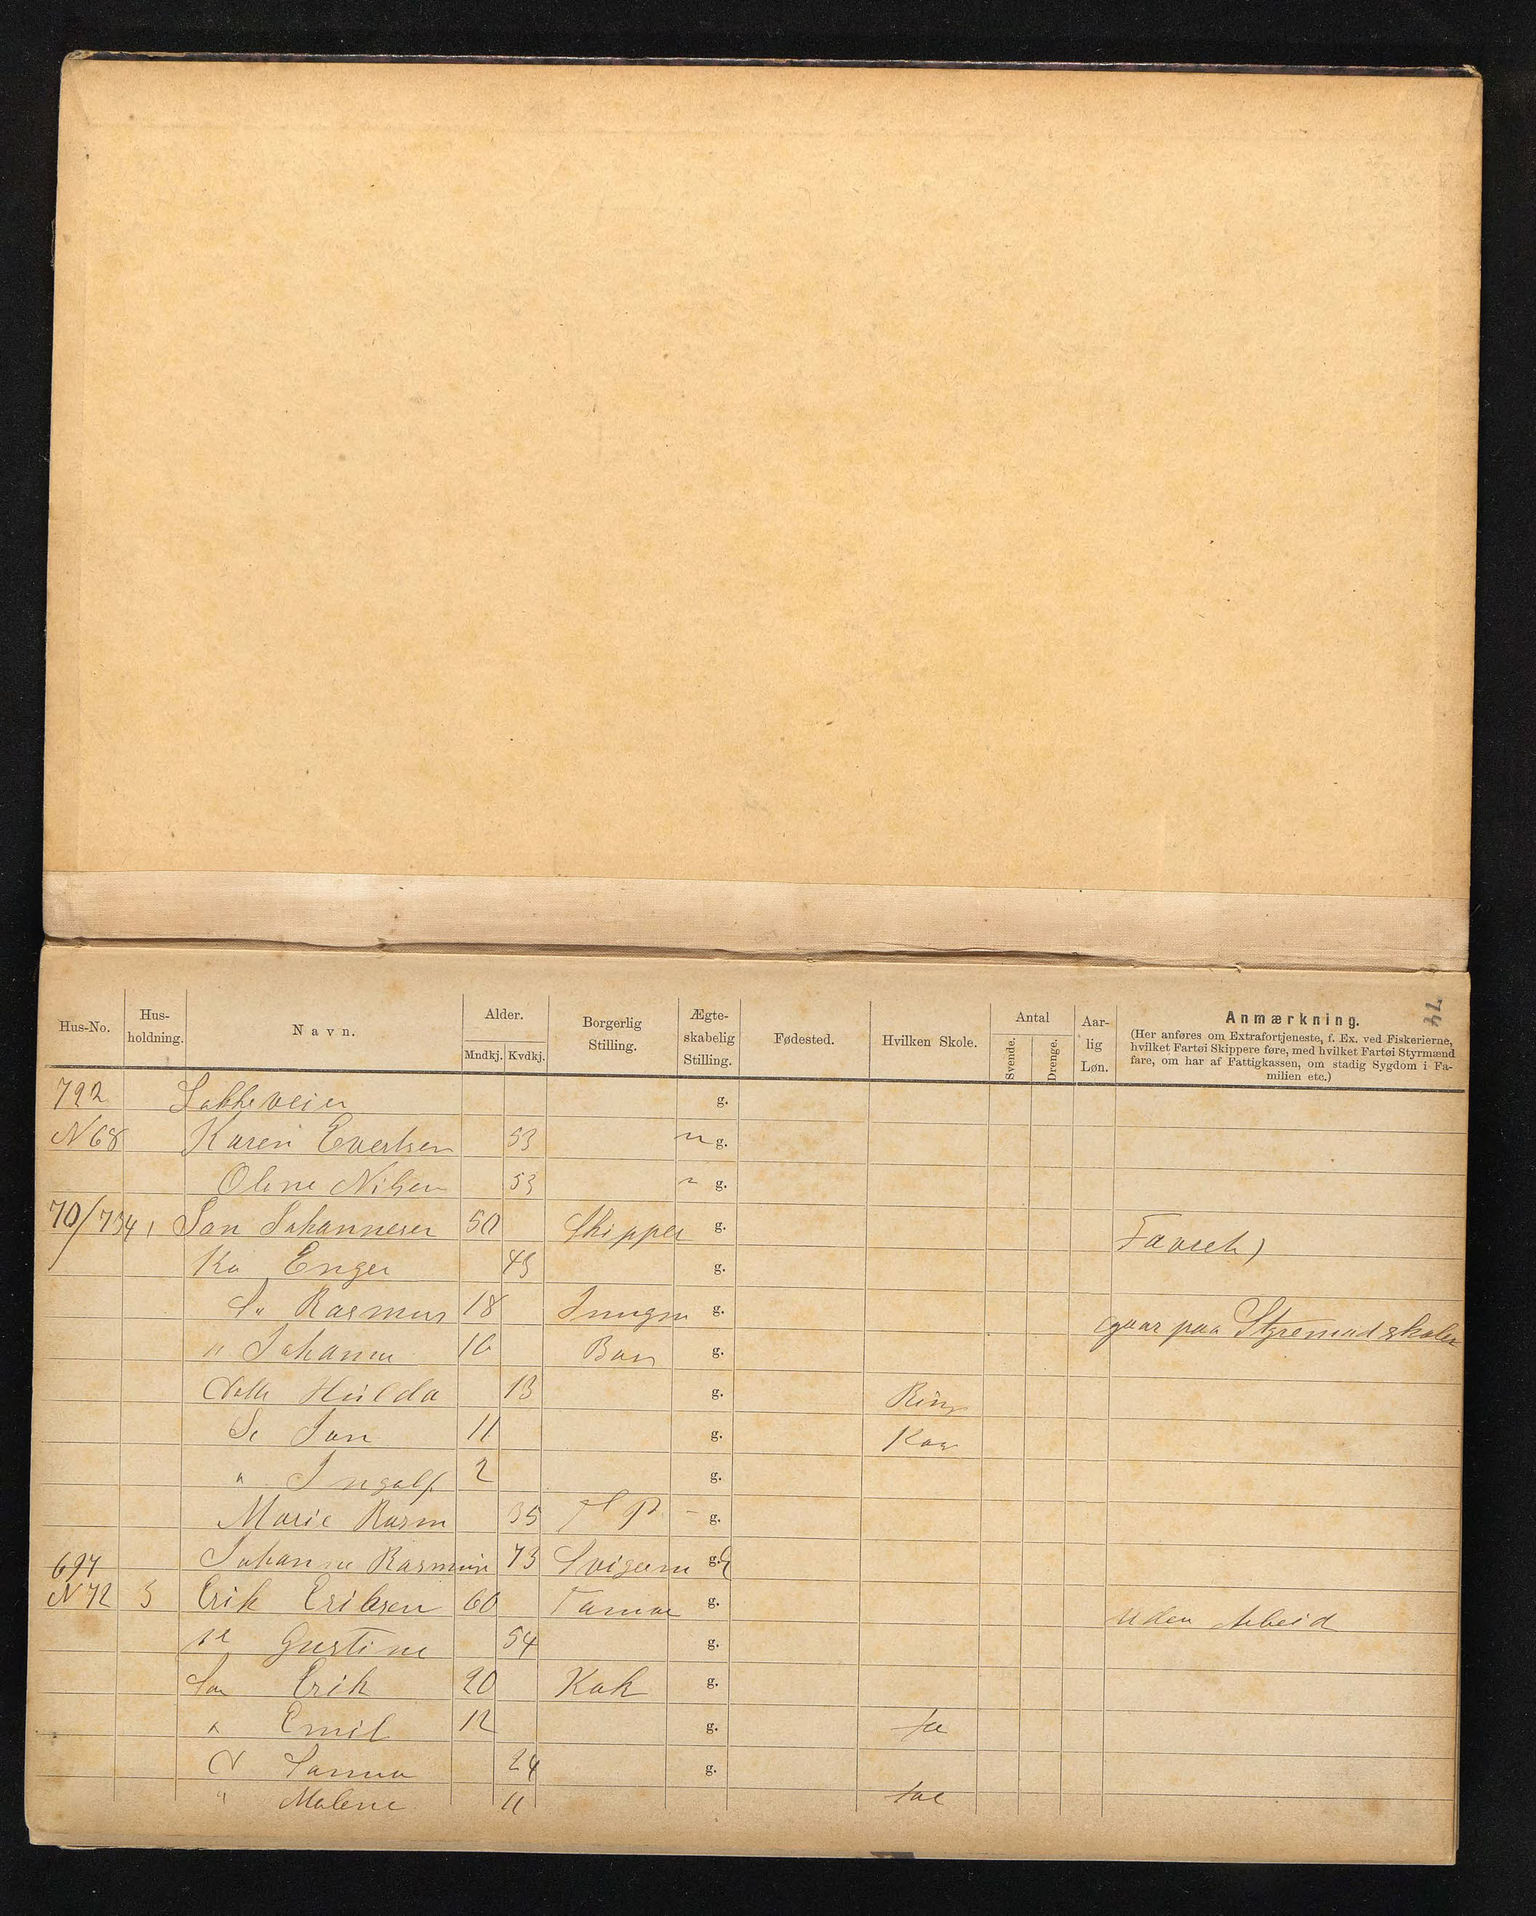 74
Hus-No. Hus-holdning. Navn. Alder. Mndkj. Kvdkj. Borgerlig Stilling. Ægte-skabelig Stilling. Fødested. Hvilken Skole. Antal Svende. Drenge. Aar-lig Løn. Anmærkning.
(Her anføres om Extrafortjeneste, f. Ex. ved Fiskerierne,
hvilket Fartøi Skippere føre, med hvilket Fartøi Styrmænd
fare, om har af Fattigkassen, om stadig Sygdom i Fa-
milien etc.)
792 Løkkeveien g.
N 68 Karen Evertsen 53 g.
Oline Nilsen 53 g.
70/734 1 Jan Johannesen 50 Skipper g.
Ko Enger 43 g.
S" Rasmus 18 g. gaar paa Styremandskolen
" Johannes 16 g.
Hulda 13 g.
Se Jan 11 g.
" Ingolf 2 g.
Marie Rasm 35 g.
Johanne Rasmus 73 Svigerm g.
697
N 72 3 Erik Eriksen 60 g. Uden Arbeid
Gustine 54 g.
Søn Erik 20 Kok g.
" Emil 12 g.
D Sanna 24 g.
" Malene 11